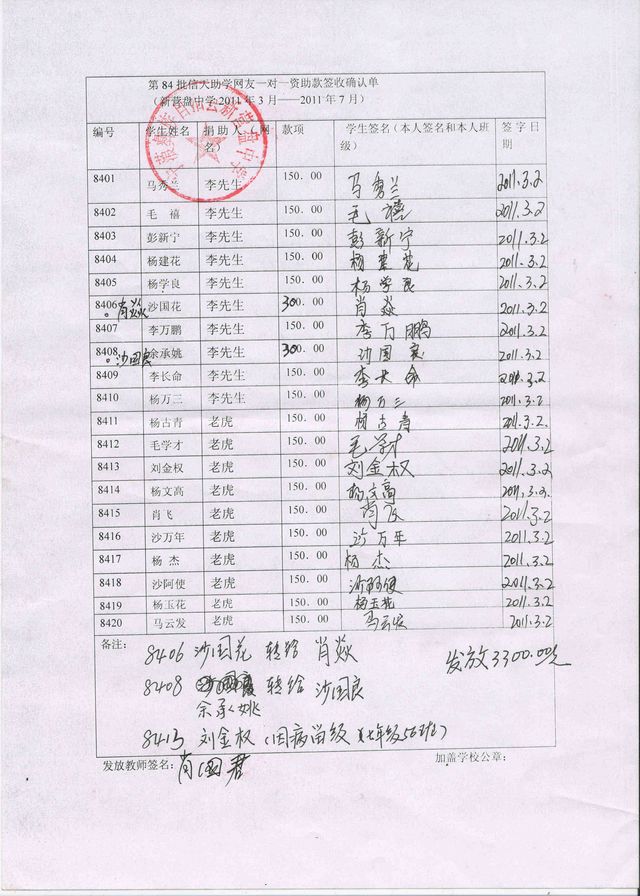 第84批信天助学网友一对一资助款签收确认单
（新营盘中学2011年3月——2011年7月）
编号 学生姓名 捐助人（网名） 款项 学生签名（本人签名和本人班级） 签字日期
8401 马秀兰 李先生 150.00 马秀兰 2011.3.2
8402 毛 禧 李先生 150.00 毛禧 2011.3.2
8403 彭新宁 李先生 150.00 彭新宁 2011.3.2
8404 杨建花 李先生 150.00 杨建花 2011.3.2
8405 杨学良 李先生 150.00 杨学良 2011.3.2
8406 肖焱 沙国花 李先生 300.00 肖焱 2011.3.2
8407 李万鹏 李先生 150.00 李万鹏 2011.3.2
8408 沙国良 余承姚 李先生 300.00 沙国良 2011.3.2
8409 李长命 李先生 150.00 李长命 2011.3.2
8410 杨万三 李先生 150.00 杨万三 2011.3.2
8411 杨古青 老虎 150.00 杨古青 2011.3.2.
8412 毛学才 老虎 150.00 毛学才 2011.3.2
8413 刘金权 老虎 150.00 刘金权 2011.3.2
8414 杨文高 老虎 150.00 杨文高 2011.3.2.
8415 肖飞 老虎 150.00 肖飞 2011.3.2
8416 沙万年 老虎 150.00 沙万年 2011.3.2
8417 杨 杰 老虎 150.00 杨杰 2011.3.2
8418 沙阿使 老虎 150.00 沙阿使 2011.3.2
8419 杨玉花 老虎 150.00 杨玉花 2011.3.2
8420 马云发 老虎 150.00 马云发 2011.3.2
备注：
8406 沙国花 转给 肖焱 发放3300.00元
8408 转给 沙国良
余承姚
8413 刘金权（因病留级 七年级56班）
发放教师签名：肖国君 加盖学校公章：